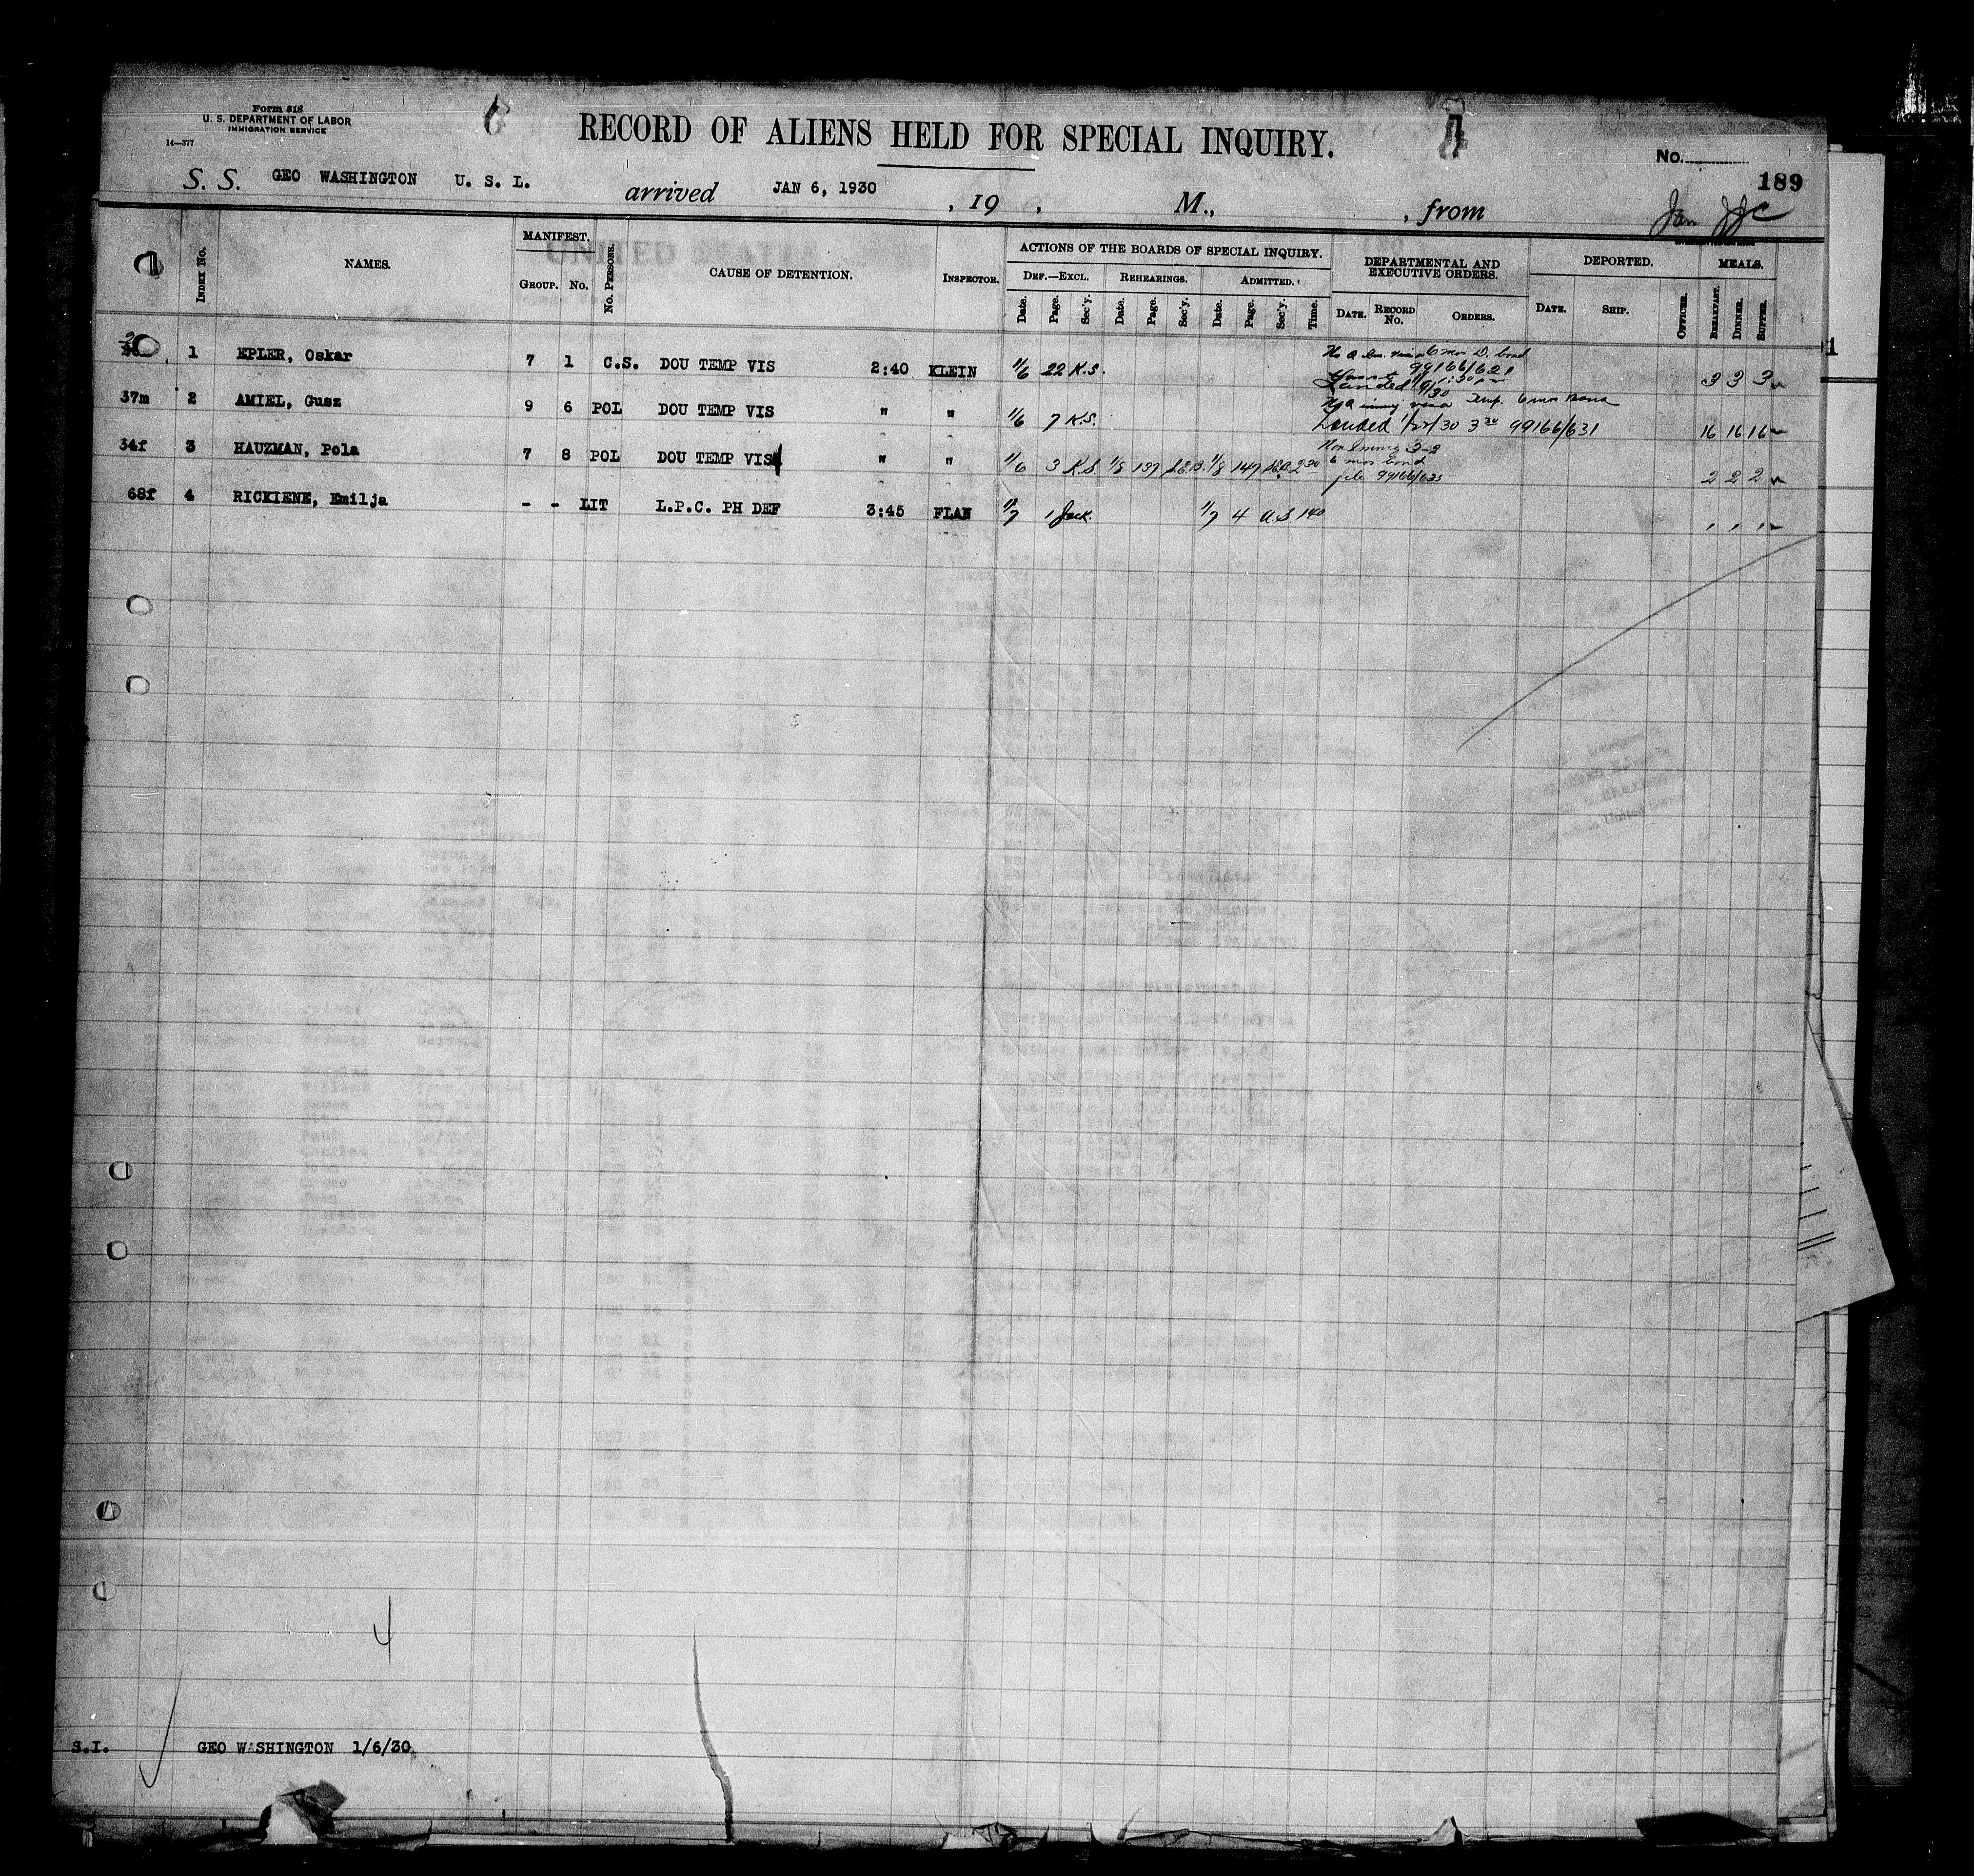 Form 518
U. S. DEPARTMENT OF LABOR
IMMIGRATION SERVICE
14—377
RECORD OF ALIENS HELD FOR SPECIAL INQUIRY.
No.
189
S. S. GEO WASHINGTON U. S. L. arrived JAN 6, 1930 , 19 , M., , from
Jan
INDEX No. NAMES. MANIFEST. GROUP. No. No. PERSONS. CAUSE OF DETENTION. INSPECTOR. ACTIONS OF THE BOARDS OF SPECIAL INQUIRY. DEF.—EXCL. Date. Page. Sec'y. REHEARINGS. Date. Page. Sec'y. ADMITTED. Date. Page. Sec'y. Time. DEPARTMENTAL AND EXECUTIVE ORDERS. DATE. RECORD No. ORDERS. DEPORTED. DATE. SHIP. OFFICER. MEALS. BREAKFAST. DINNER. SUPPER.
1 EPLER, Oskar 7 1 C.S. DOU TEMP VIS 2:40 KLEIN 1/6 22 K.S. 99166/621 Landed 3 3 3
37m 2 AMIEL, Gusz 9 6 POL DOU TEMP VIS " " 1/6 7 K.S. Landed 1/22/30 3 30 99166/631 16 16 16
34f 3 HAUZMAN, Pola 7 8 POL DOU TEMP VIS " " 1/6 3 K.S. 1/8 137 1/8 147 2 30 Non Immig 3-2 6 mos bond file 99166/633 2 2 2
68f 4 RICKIENE, Emilja - - LIT L.P.C. PH DEF 3:45 FLAN 1/7 1 Jack. 1/7 4 A.S 140 1 1 1
4
S.I. GEO WASHINGTON 1/6/30